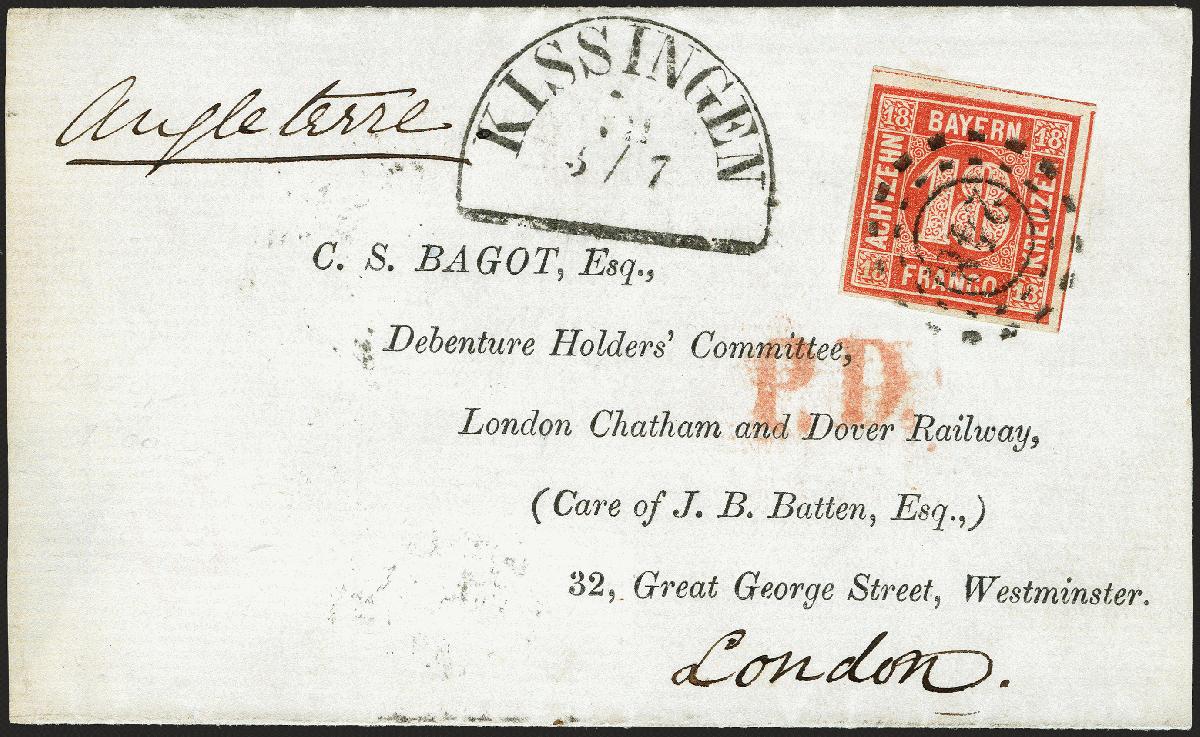 Angleterre
KISSINGEN
5/7
18 BAYERN 18
ACHTZEHN
18
KREUZER
18 FRANCO 18
C. S. BAGOT, Esq.,
Debenture Holders' Committee,
P.D.
London Chatham and Dover Railway,
(Care of J. B. Batten, Esq.,)
32, Great George Street, Westminster.
London.